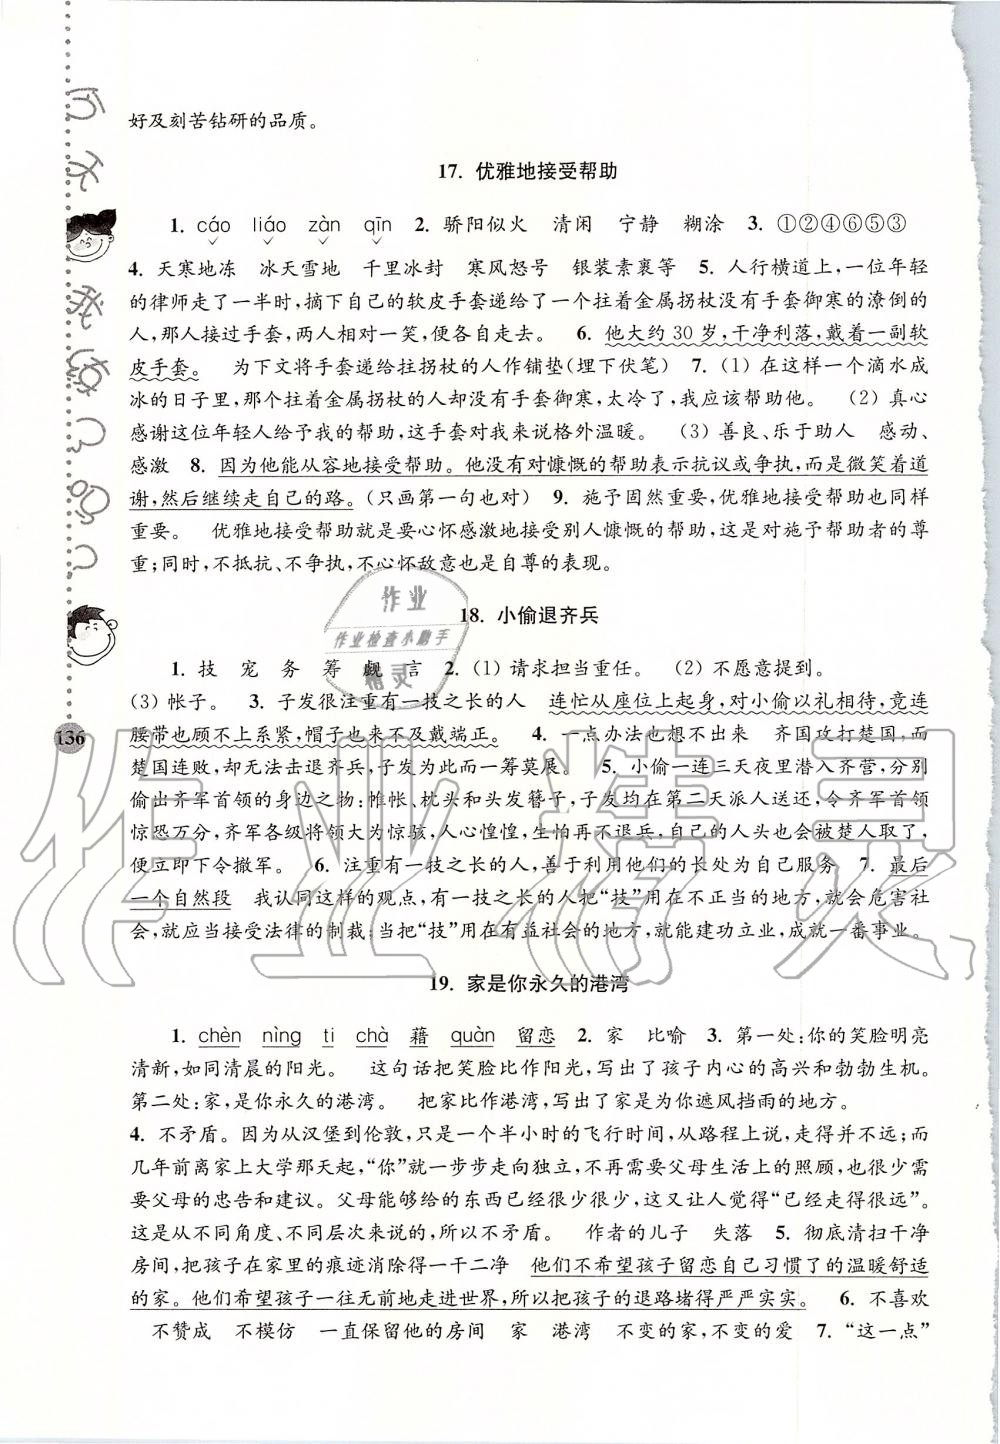 好及刻苦钻研的品质。
17. 优雅地接受帮助
1. cáo liáo zàn qīn 2. 骄阳似火 清闲 宁静 糊涂 3. ①②④⑥⑤③
4. 天寒地冻 冰天雪地 千里冰封 寒风怒号 银装素裹等 5. 人行横道上,一位年轻
的律师走了一半时,摘下自己的软皮手套递给了一个拄着金属拐杖没有手套御寒的潦倒的
人,那人接过手套,两人相对一笑,便各自走去。 6. 他大约 30 岁,干净利落,戴着一副软
皮手套。 为下文将手套递给拄拐杖的人作铺垫(埋下伏笔) 7. (1) 在这样一个滴水成
冰的日子里,那个拄着金属拐杖的人却没有手套御寒,太冷了,我应该帮助他。 (2) 真心
感谢这位年轻人给予我的帮助,这手套对我来说格外温暖。 (3) 善良、乐于助人 感动、
感激 8. 因为他能从容地接受帮助。他没有对慷慨的帮助表示抗议或争执,而是微笑着道
谢,然后继续走自己的路。(只画第一句也对) 9. 施予固然重要,优雅地接受帮助也同样
重要。 优雅地接受帮助就是要心怀感激地接受别人慷慨的帮助,这是对施予帮助者的尊
重;同时,不抵抗、不争执、不心怀敌意也是自尊的表现。
18. 小偷退齐兵
1. 技 宠 务 筹 觑 言 2. (1) 请求担当重任。 (2) 不愿意提到。
(3) 帐子。 3. 子发很注重有一技之长的人 连忙从座位上起身,对小偷以礼相待,竟连
腰带也顾不上系紧,帽子也来不及戴端正。 4. 一点办法也想不出来 齐国攻打楚国,而
楚国连败,却无法击退齐兵,子发为此而一筹莫展。 5. 小偷一连三天夜里潜入齐营,分别
偷出齐军首领的身边之物:帷帐、枕头和头发簪子,子发均在第二天派人送还,令齐军首领
惊恐万分,齐军各级将领大为惊骇,人心惶惶,生怕再不退兵,自己的人头也会被楚人取了,
便立即下令撤军。 6. 注重有一技之长的人,善于利用他们的长处为自己服务 7. 最后
一个自然段 我认同这样的观点,有一技之长的人把“技”用在不正当的地方,就会危害社
会,就应当接受法律的制裁;当把“技”用在有益社会的地方,就能建功立业,成就一番事业。
19. 家是你永久的港湾
1. chèn nìng ti chà 藉 quàn 留恋 2. 家 比喻 3. 第一处:你的笑脸明亮
清新,如同清晨的阳光。 这句话把笑脸比作阳光,写出了孩子内心的高兴和勃勃生机。
第二处:家,是你永久的港湾。 把家比作港湾,写出了家是为你遮风挡雨的地方。
4. 不矛盾。因为从汉堡到伦敦,只是一个半小时的飞行时间,从路程上说,走得并不远;而
几年前离家上大学那天起,“你”就一步步走向独立,不再需要父母生活上的照顾,也很少需
要父母的忠告和建议。父母能够给的东西已经很少很少,这又让人觉得“已经走得很远”。
这是从不同角度、不同层次来说的,所以不矛盾。 作者的儿子 失落 5. 彻底清扫干净
房间,把你在家里的痕迹消除得一干二净 他们不希望孩子留恋自己习惯了的温暖舒适
的家。他们希望孩子一往无前地走进世界,所以把孩子的退路堵得严严实实。 6. 不喜欢
不赞成 不模仿 一直保留他的房间 家 港湾 不变的家,不变的爱 7. “这一点”
136
作业
作业检查小助手
精灵
作业精灵